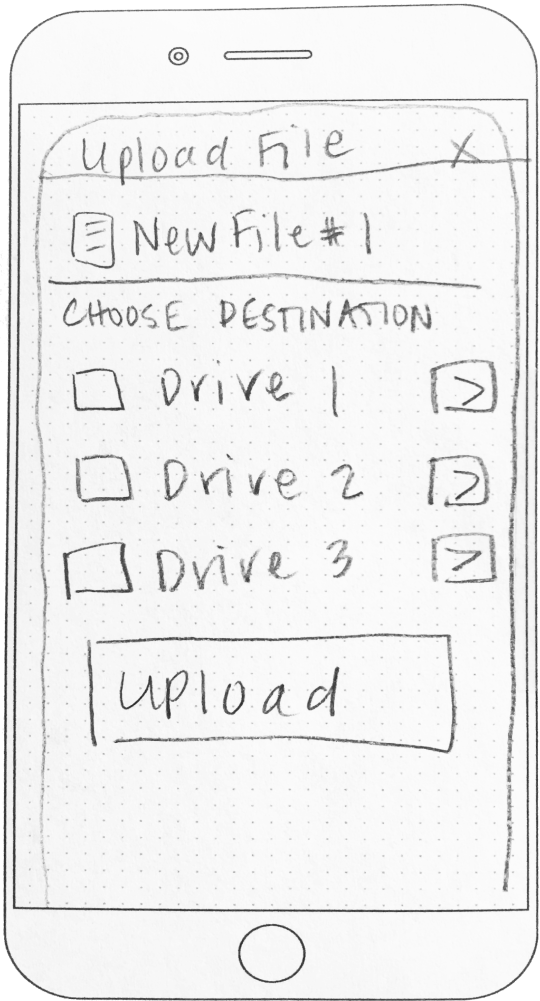 Upload File X
New File # 1
CHOOSE DESTINATION
Drive 1 >
Drive 2 >
Drive 3 >
Upload